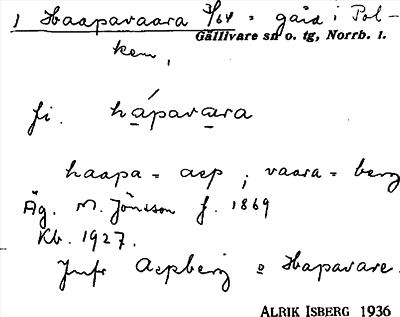 1 Haapavaara 7/64 = gård i Pol-
Gällivare sn o. tg, Norrb. l.
ken,
fi. hápavara
haapa = asp ; vaara = berg
Äg. M. Jönsson f. 1869
Kb. 1927.
Jmfr Aspberg o Hapavare.
ALRIK ISBERG 1936